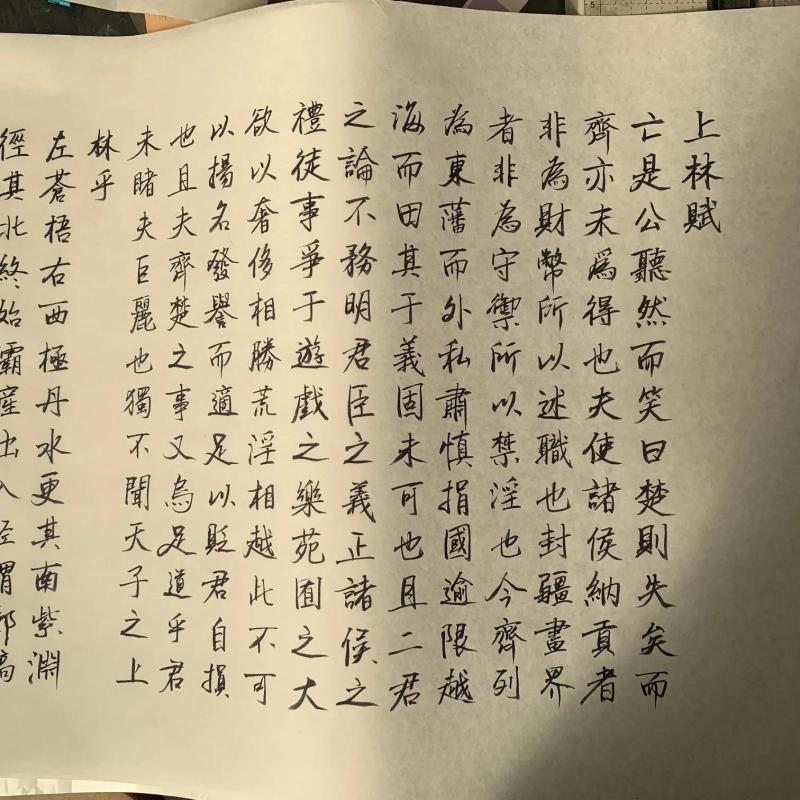 上林賦
亡是公聽然而笑曰楚則失矣而
齊亦未爲得也夫使諸侯納貢者
非為財幣所以述職也封疆畫界
者非為守禦所以禁淫也今齊列
為東藩而外私肅慎捐國逾限越
海而田其于義固未可也且二君
之論不務明君臣之義正諸侯之
禮徒事爭于遊戲之樂苑囿之大
欲以奢侈相勝荒淫相越此不可
以揚名發譽而適足以貶君自損
也且夫齊楚之事又烏足道乎君
未睹夫巨麗也獨不聞天子之上
林乎
左蒼梧右西極丹水更其南紫淵
徑其北終始霸產出入涇渭鄗鎬
5